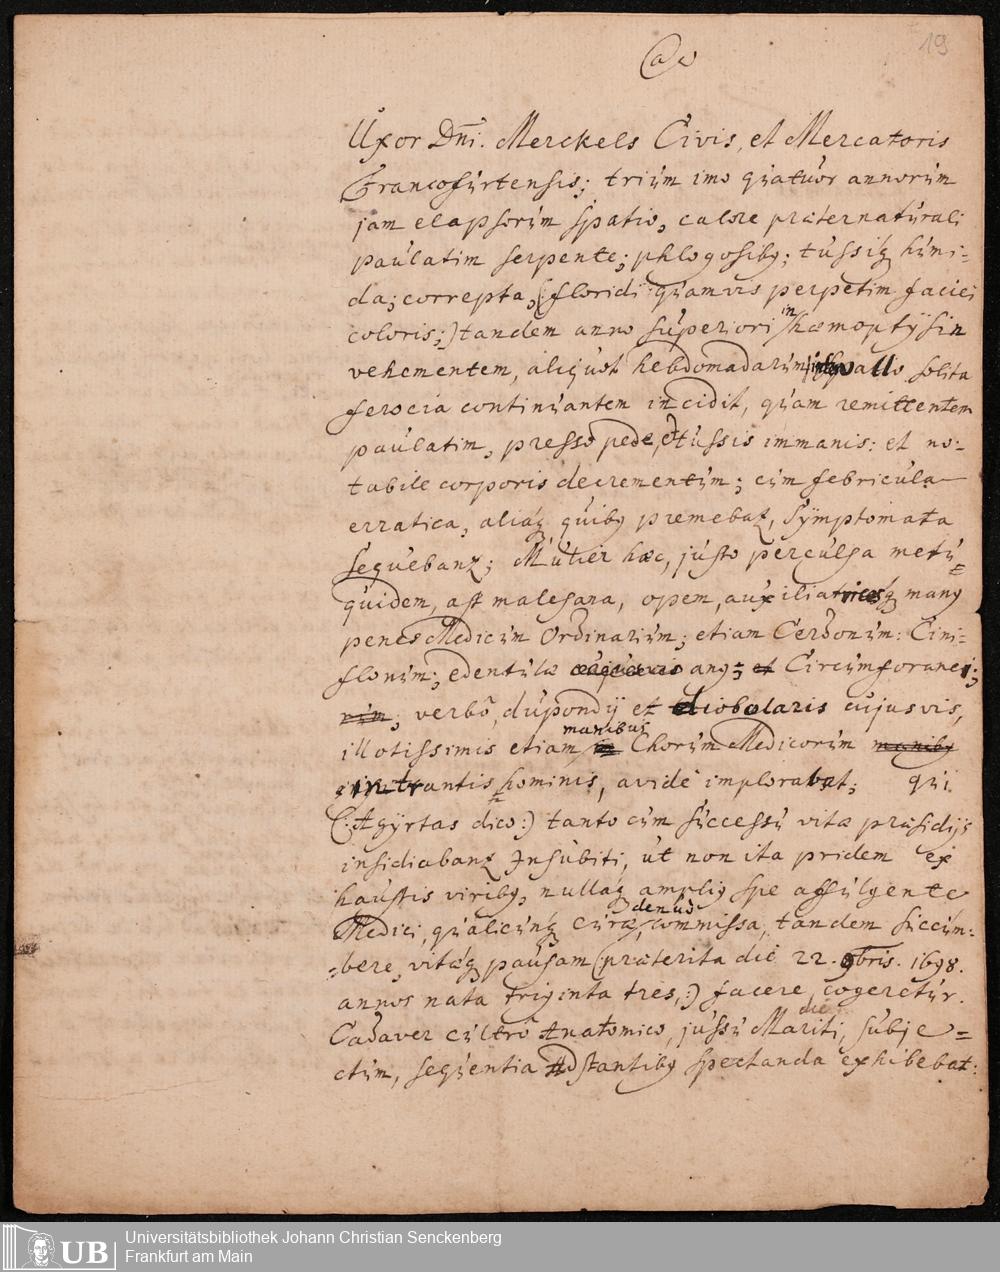 19
Uxor Dni. Merckels Civis, et Mercatoris
Francofurtensis; trium imo quatuor annorum
jam elapsorum spatio, calore praeternaturali
paulatim serpente; phlogosibq; tussiq humi-
da; correpta, (floridi quamvis perpetim faciei
coloris;) tandem anno superiori in haemoptysin
vehementem, aliquot hebdomadarum intervallo solita
ferocia continuantem incidit, quam remittentem
paulatim, presso pede, et tussis immanis: et no-
tabile corporis decrementum; cum febricula
erratica, aliaq quibq premebat, Symptomata
sequebant; Mulier haec, justo perculsa metu
quidem, ast malesana, opem, auxiliatricesq manq
penes Medicum Ordinarium; etiam Cerdonum: Cini-
flonum; edentulae anq; et Circumforanei;
rum; verbo, dupondij et diobolaris cujusvis,
manibus
illotissimis etiam in Chorum Medicorum manibq
intrantis hominis, avidè implorabat; qui
(Agyrtas dico:) tanto cum successu vitae praesidijs
insidiabant Insubiti, ut non ita pridem ex
haustis viribq, nullaq ampliq spe affulgente
denuo
Medici, qualicunq curae, commissa, tandem succum-
bere, vitaeq pausam (praeterita die 22. 9bris. 1698.
annos nata triginta tres,:) facere cogeretur.
die
Cadaver cultro Anatomico, jussu Mariti, subje-
ctum, sequentia Adstantibq spectanda exhibebat:
UB
Universitätsbibliothek Johann Christian Senckenberg
Frankfurt am Main